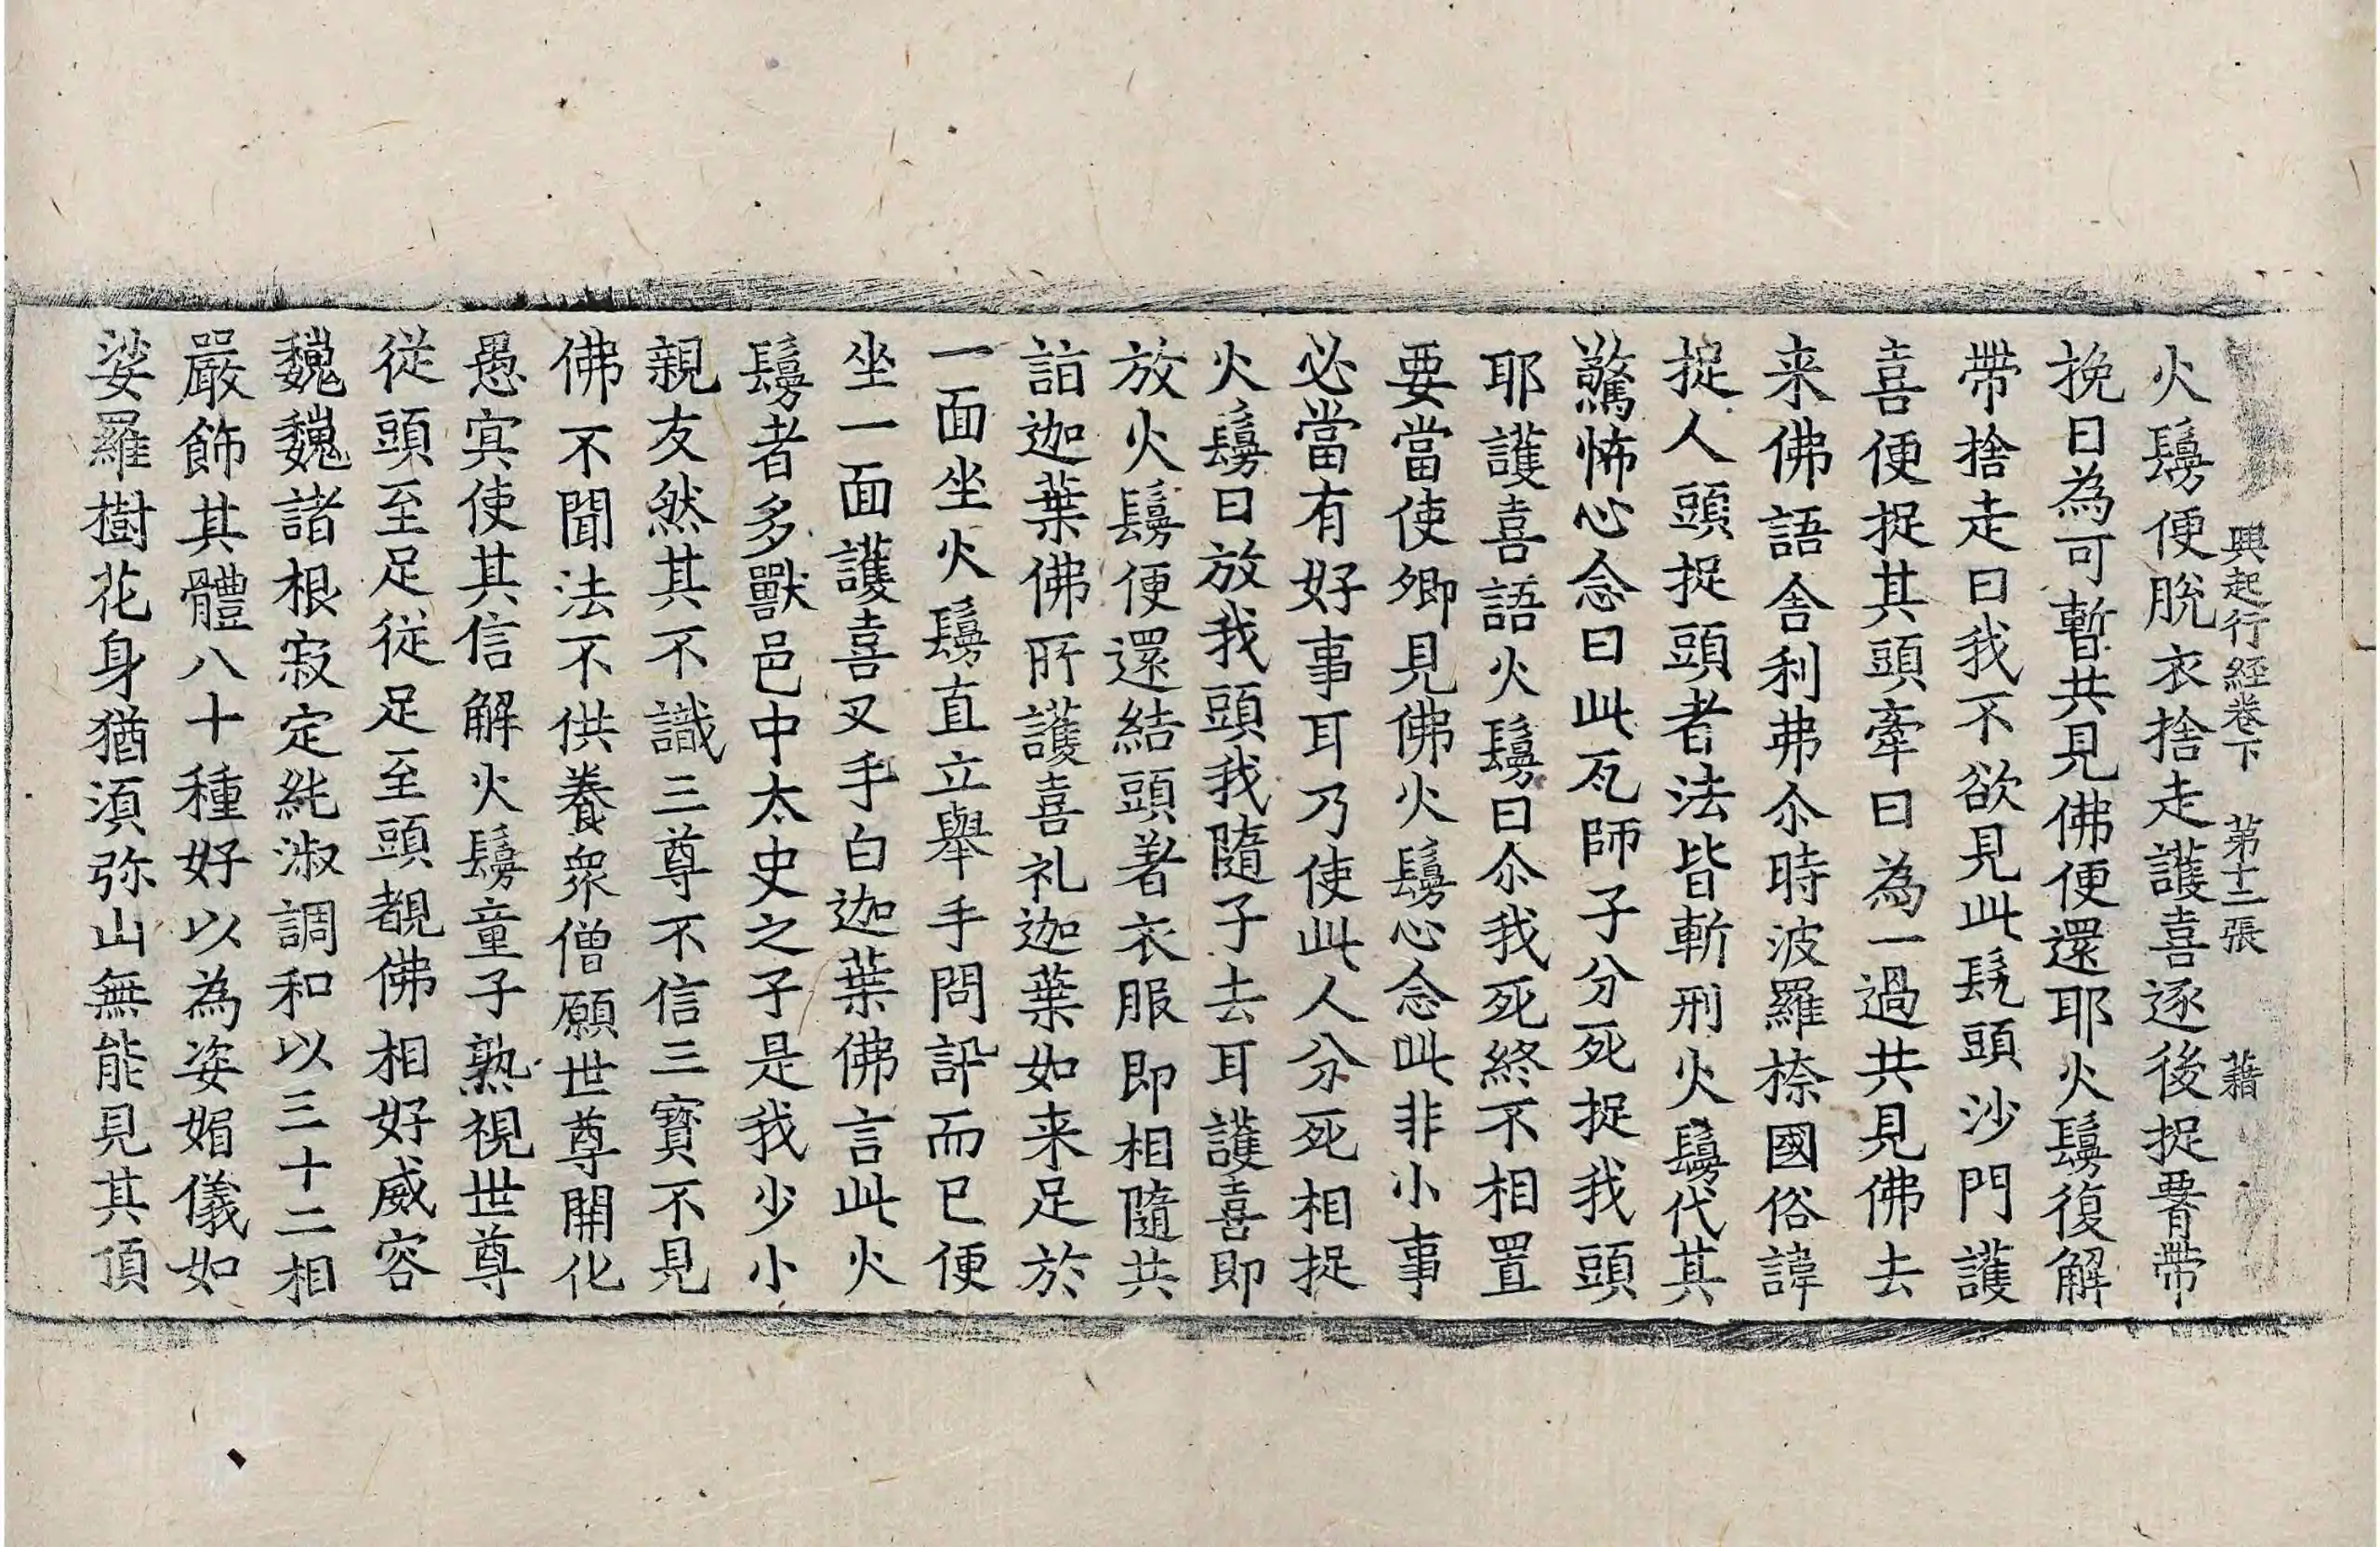 興起行経卷下　第十二張　藉
火鬘便脫衣捨走護喜逐後捉𦝫帶
挽曰為可暫共見佛便還耶火鬘復解
帶捨走曰我不欲見此髡頭沙門護
喜便捉其頭牽曰為一過共見佛去
来佛語舍利弗尒時波羅㮈國俗諱
捉人頭捉頭者法皆斬刑火鬘代其
驚怖心念曰此瓦師子分死捉我頭
耶護喜語火鬘曰尒我死終不相置
要當使卿見佛火鬘心念此非小事
必當有好事耳乃使此人分死相捉
火鬘曰放我頭我隨子去耳護喜即
放火鬘便還結頭著衣服即相隨共
詣迦葉佛所護喜礼迦葉如来足於
一面坐火鬘直立舉手問訊而已便
坐一面護喜叉手白迦葉佛言此火
鬘者多獸邑中太史之子是我少小
親友然其不識三尊不信三寳不見
佛不聞法不供養衆僧願世尊開化
愚㝠使其信解火鬘童子熟視世尊
從頭至足從足至頭覩佛相好威容
巍巍諸根寂定純淑調和以三十二相
嚴飾其體八十種好以為姿媚儀如
娑羅樹花身猶湏弥山無能見其頂